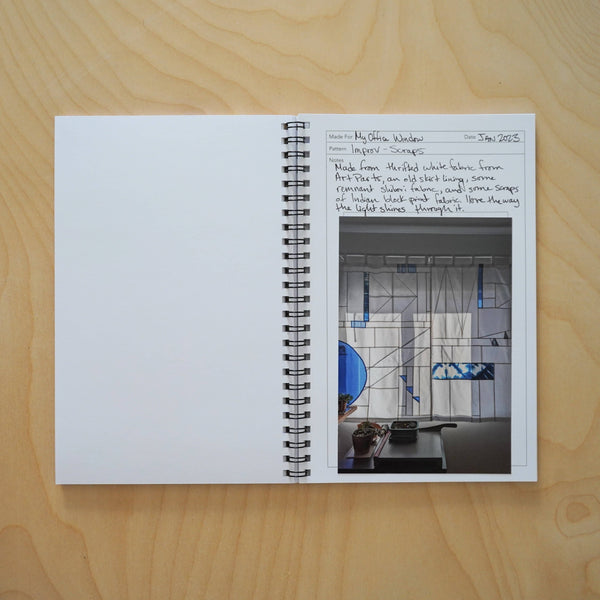 Made For: My Office Window Date: JAN 2023
Pattern: Improv - Scraps
Notes
Made from thrifted white fabric from
Art Parts, an old skirt lining, some
remnant shibori fabric, and some scraps
of Indian block print fabric. I love the way
the light shines through it.